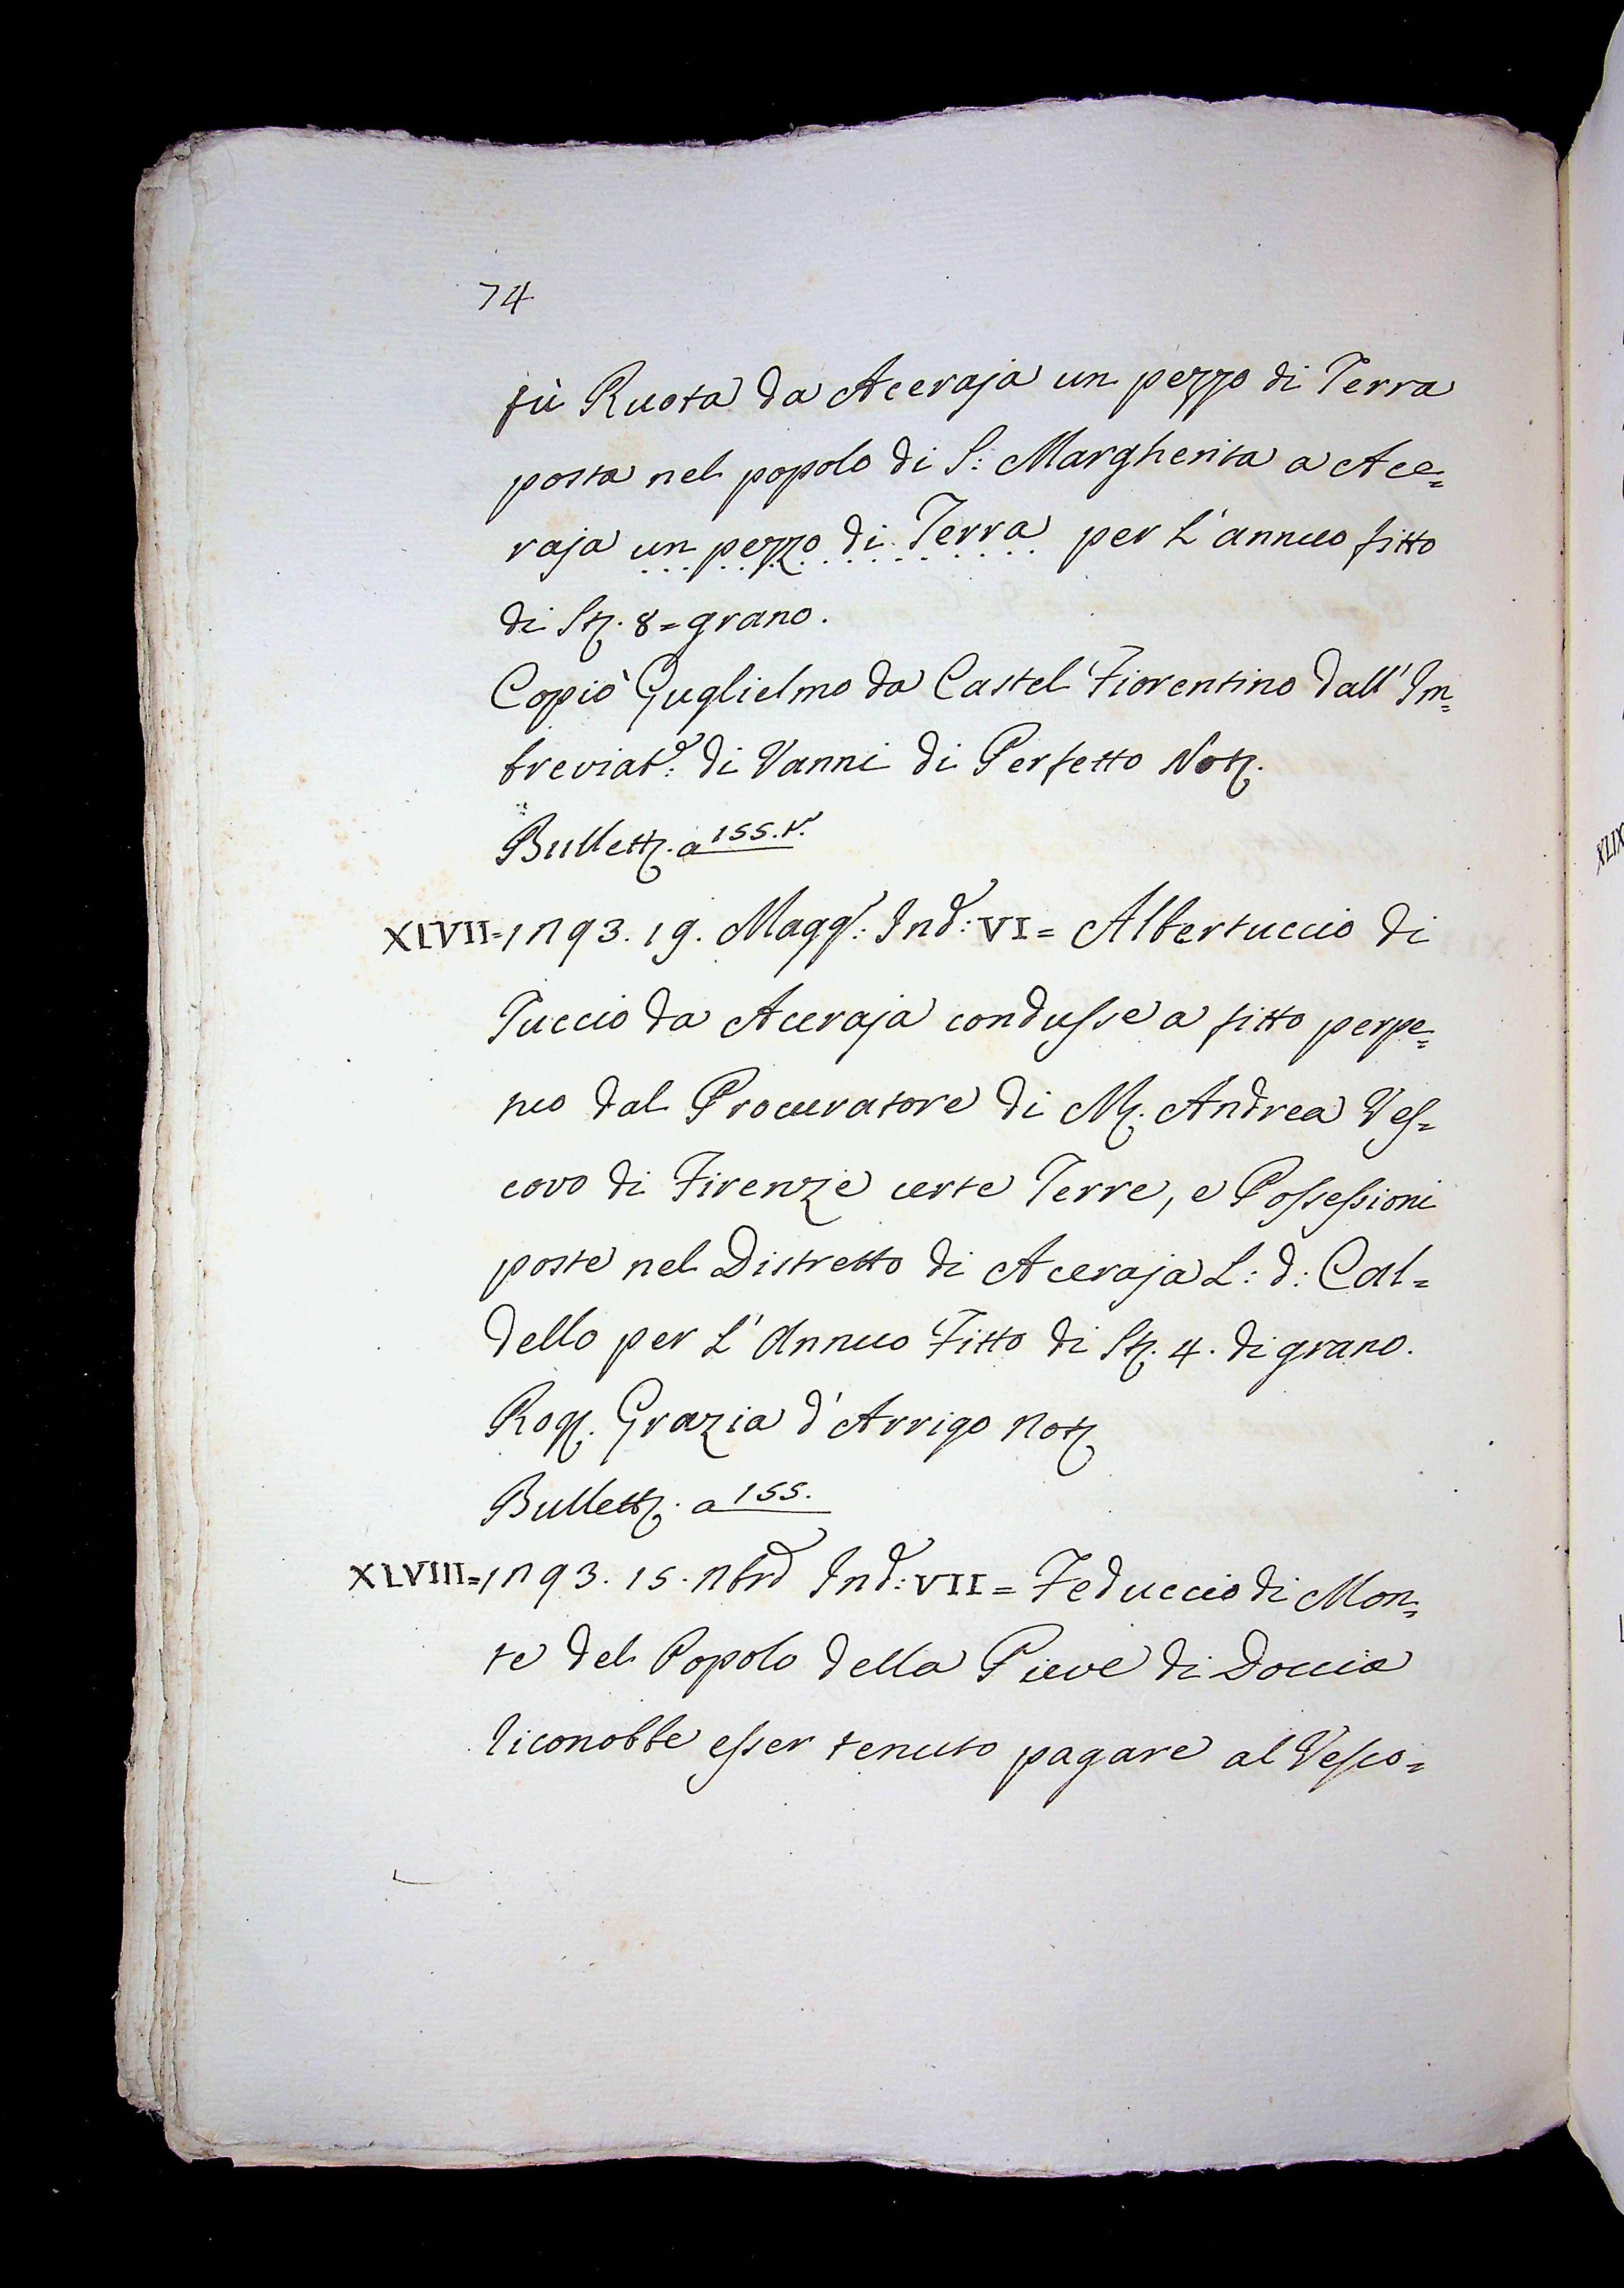 74
fù Ruota da Aceraja un pezzo di Terra
posta nel popolo di S: Margherita a Ace=
raja un pezzo di Terra per l'annuo fitto
di St. 8= grano.
Copiò Guglielmo da Castel Fiorentino dall'Im=
breviat.e: di Vanni di Perfetto Not.
Bullett. a 155.t.
XLVII=1293. 19. Magg.: Ind: VI= Albertuccio di
Tuccio da Aceraja condusse a fitto perpe=
tuo dal Procuratore di M. Andrea Ves=
covo di Firenze certe Terre, e Possessioni
poste nel Distretto di Aceraja L: d: Cal=
dello per l'Annuo Fitto di St. 4. di grano.
Rog. Grazia d'Arrigo Not
Bullett. a 155.
XLVIII=1293. 15. Nbre Ind: VII= Feduccio di Mon=
te del Popolo della Pieve di Doccia
riconobbe esser tenuto pagare al Vesco=
XLIX